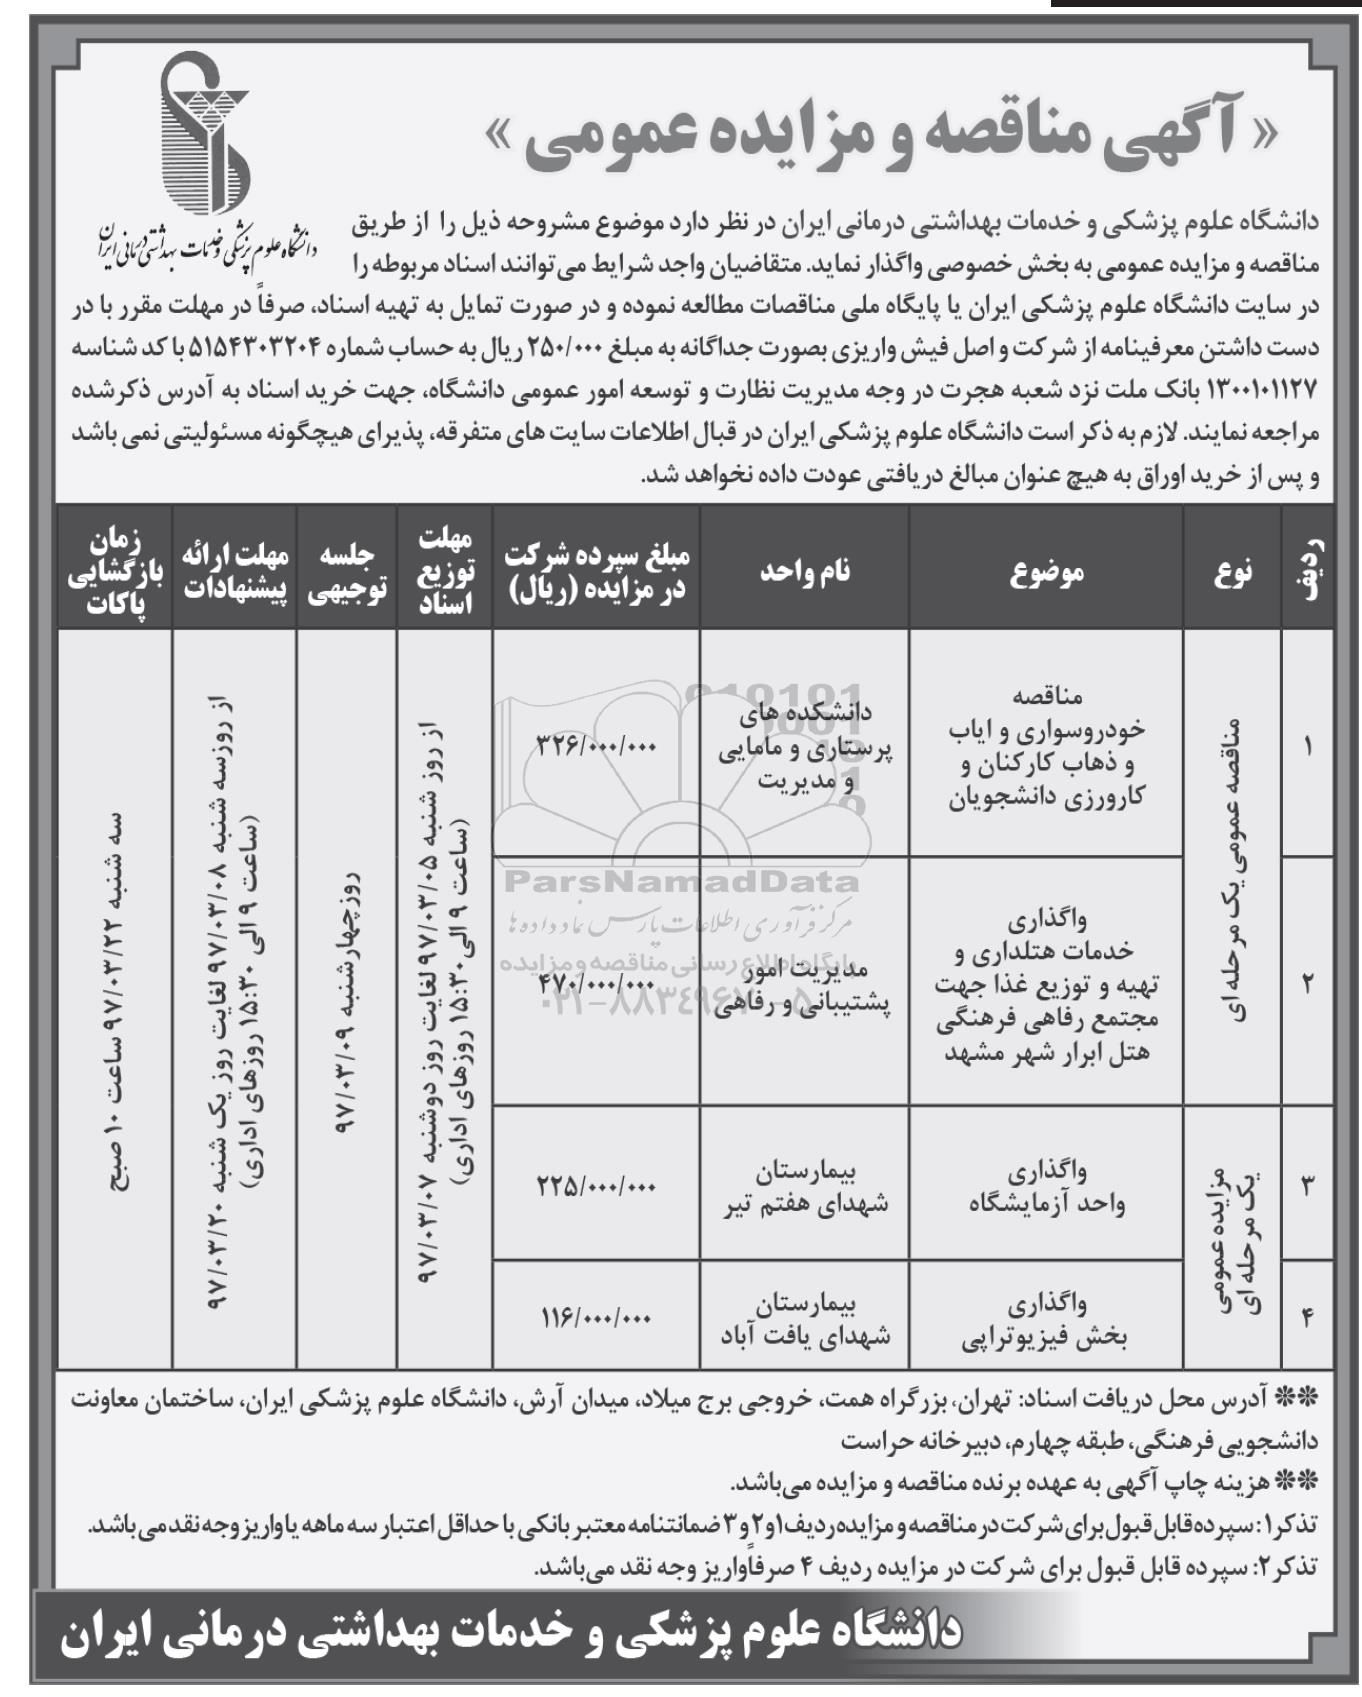 « آگهی مناقصه و مزایده عمومی »
دانشگاه علوم پزشکی و خدمات بهداشتی درمانی ایران
دانشگاه علوم پزشکی و خدمات بهداشتی درمانی ایران در نظر دارد موضوع مشروحه ذیل را از طریق
مناقصه و مزایده عمومی به بخش خصوصی واگذار نماید. متقاضیان واجد شرایط می‌توانند اسناد مربوطه را
در سایت دانشگاه علوم پزشکی ایران یا پایگاه ملی مناقصات مطالعه نموده و در صورت تمایل به تهیه اسناد، صرفاً در مهلت مقرر با در
دست داشتن معرفینامه از شرکت و اصل فیش واریزی بصورت جداگانه به مبلغ ۲۵۰/۰۰۰ ریال به حساب شماره ۵۱۵۴۳۰۳۲۰۴ با کد شناسه
۱۳۰۰۱۰۱۱۲۷ بانک ملت نزد شعبه هجرت در وجه مدیریت نظارت و توسعه امور عمومی دانشگاه، جهت خرید اسناد به آدرس ذکرشده
مراجعه نمایند. لازم به ذکر است دانشگاه علوم پزشکی ایران در قبال اطلاعات سایت های متفرقه، پذیرای هیچگونه مسئولیتی نمی باشد
و پس از خرید اوراق به هیچ عنوان مبالغ دریافتی عودت داده نخواهد شد.
ردیف
نوع
موضوع
نام واحد
مبلغ سپرده شرکت
در مزایده (ریال)
مهلت
توزیع
اسناد
جلسه
توجیهی
مهلت ارائه
پیشنهادات
زمان
بازگشایی
پاکات
۱
مناقصه عمومی یک مرحله ای
مناقصه
خودروسواری و ایاب
و ذهاب کارکنان و
کارورزی دانشجویان
دانشکده های
پرستاری و مامایی
و مدیریت
۳۲۶/۰۰۰/۰۰۰
از روز شنبه ۹۷/۰۳/۰۵ لغایت روز دوشنبه ۹۷/۰۳/۰۷
(ساعت ۹ الی ۱۵:۳۰ روزهای اداری)
روزچهارشنبه ۹۷/۰۳/۰۹
از روزسه شنبه ۹۷/۰۳/۰۸ لغایت روز یک شنبه ۹۷/۰۳/۲۰
(ساعت ۹ الی ۱۵:۳۰ روزهای اداری)
سه شنبه ۹۷/۰۳/۲۲ ساعت ۱۰ صبح
۲
واگذاری
خدمات هتلداری و
تهیه و توزیع غذا جهت
مجتمع رفاهی فرهنگی
هتل ابرار شهر مشهد
مدیریت امور
پشتیبانی و رفاهی
۴۷۰/۰۰۰/۰۰۰
۳
مزایده عمومی
یک مرحله ای
واگذاری
واحد آزمایشگاه
بیمارستان
شهدای هفتم تیر
۲۲۵/۰۰۰/۰۰۰
۴
واگذاری
بخش فیزیوتراپی
بیمارستان
شهدای یافت آباد
۱۱۶/۰۰۰/۰۰۰
ParsNamadData
مرکز فرآوری اطلاعات پارس نماد داده ها
پایگاه اطلاع رسانی مناقصه و مزایده
۰۲۱-۸۸۳۴۹۶۷۰-۵
** آدرس محل دریافت اسناد: تهران، بزرگراه همت، خروجی برج میلاد، میدان آرش، دانشگاه علوم پزشکی ایران، ساختمان معاونت
دانشجویی فرهنگی، طبقه چهارم، دبیرخانه حراست
** هزینه چاپ آگهی به عهده برنده مناقصه و مزایده می‌باشد.
تذکر۱: سپرده قابل قبول برای شرکت در مناقصه و مزایده ردیف ۱و۲و۳ ضمانتنامه معتبر بانکی با حداقل اعتبار سه ماهه یا واریز وجه نقد می باشد.
تذکر۲: سپرده قابل قبول برای شرکت در مزایده ردیف ۴ صرفاًواریز وجه نقد می‌باشد.
دانشگاه علوم پزشکی و خدمات بهداشتی درمانی ایران